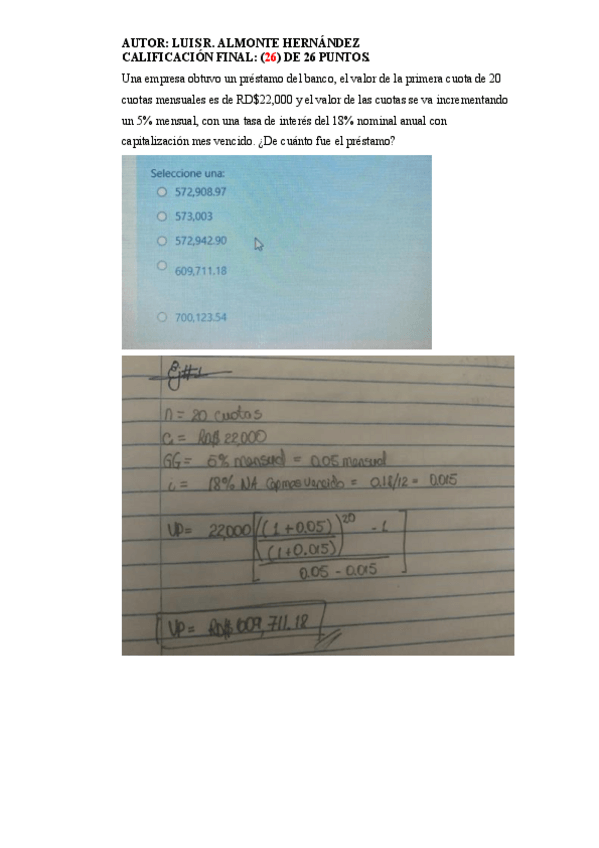 AUTOR: LUIS R. ALMONTE HERNÁNDEZ
CALIFICACIÓN FINAL: (26) DE 26 PUNTOS.
Una empresa obtuvo un préstamo del banco, el valor de la primera cuota de 20
cuotas mensuales es de RD$22,000 y el valor de las cuotas se va incrementando
un 5% mensual, con una tasa de interés del 18% nominal anual con
capitalización mes vencido. ¿De cuánto fue el préstamo?
Seleccione una:
572,908.97
573,003
572,942.90
609,711.18
700,123.54
Ej#1
n = 20 cuotas
C = RD$ 22000
GG = 5% mensual = 0.05 mensual
i = 18% NA Cap mes vencido = 0.18/12 = 0.015
VP = 22,000 [ ( (1+0.05) / (1+0.015) )^20 - 1
0.05 - 0.015 ]
VP = RD$ 609,711.18